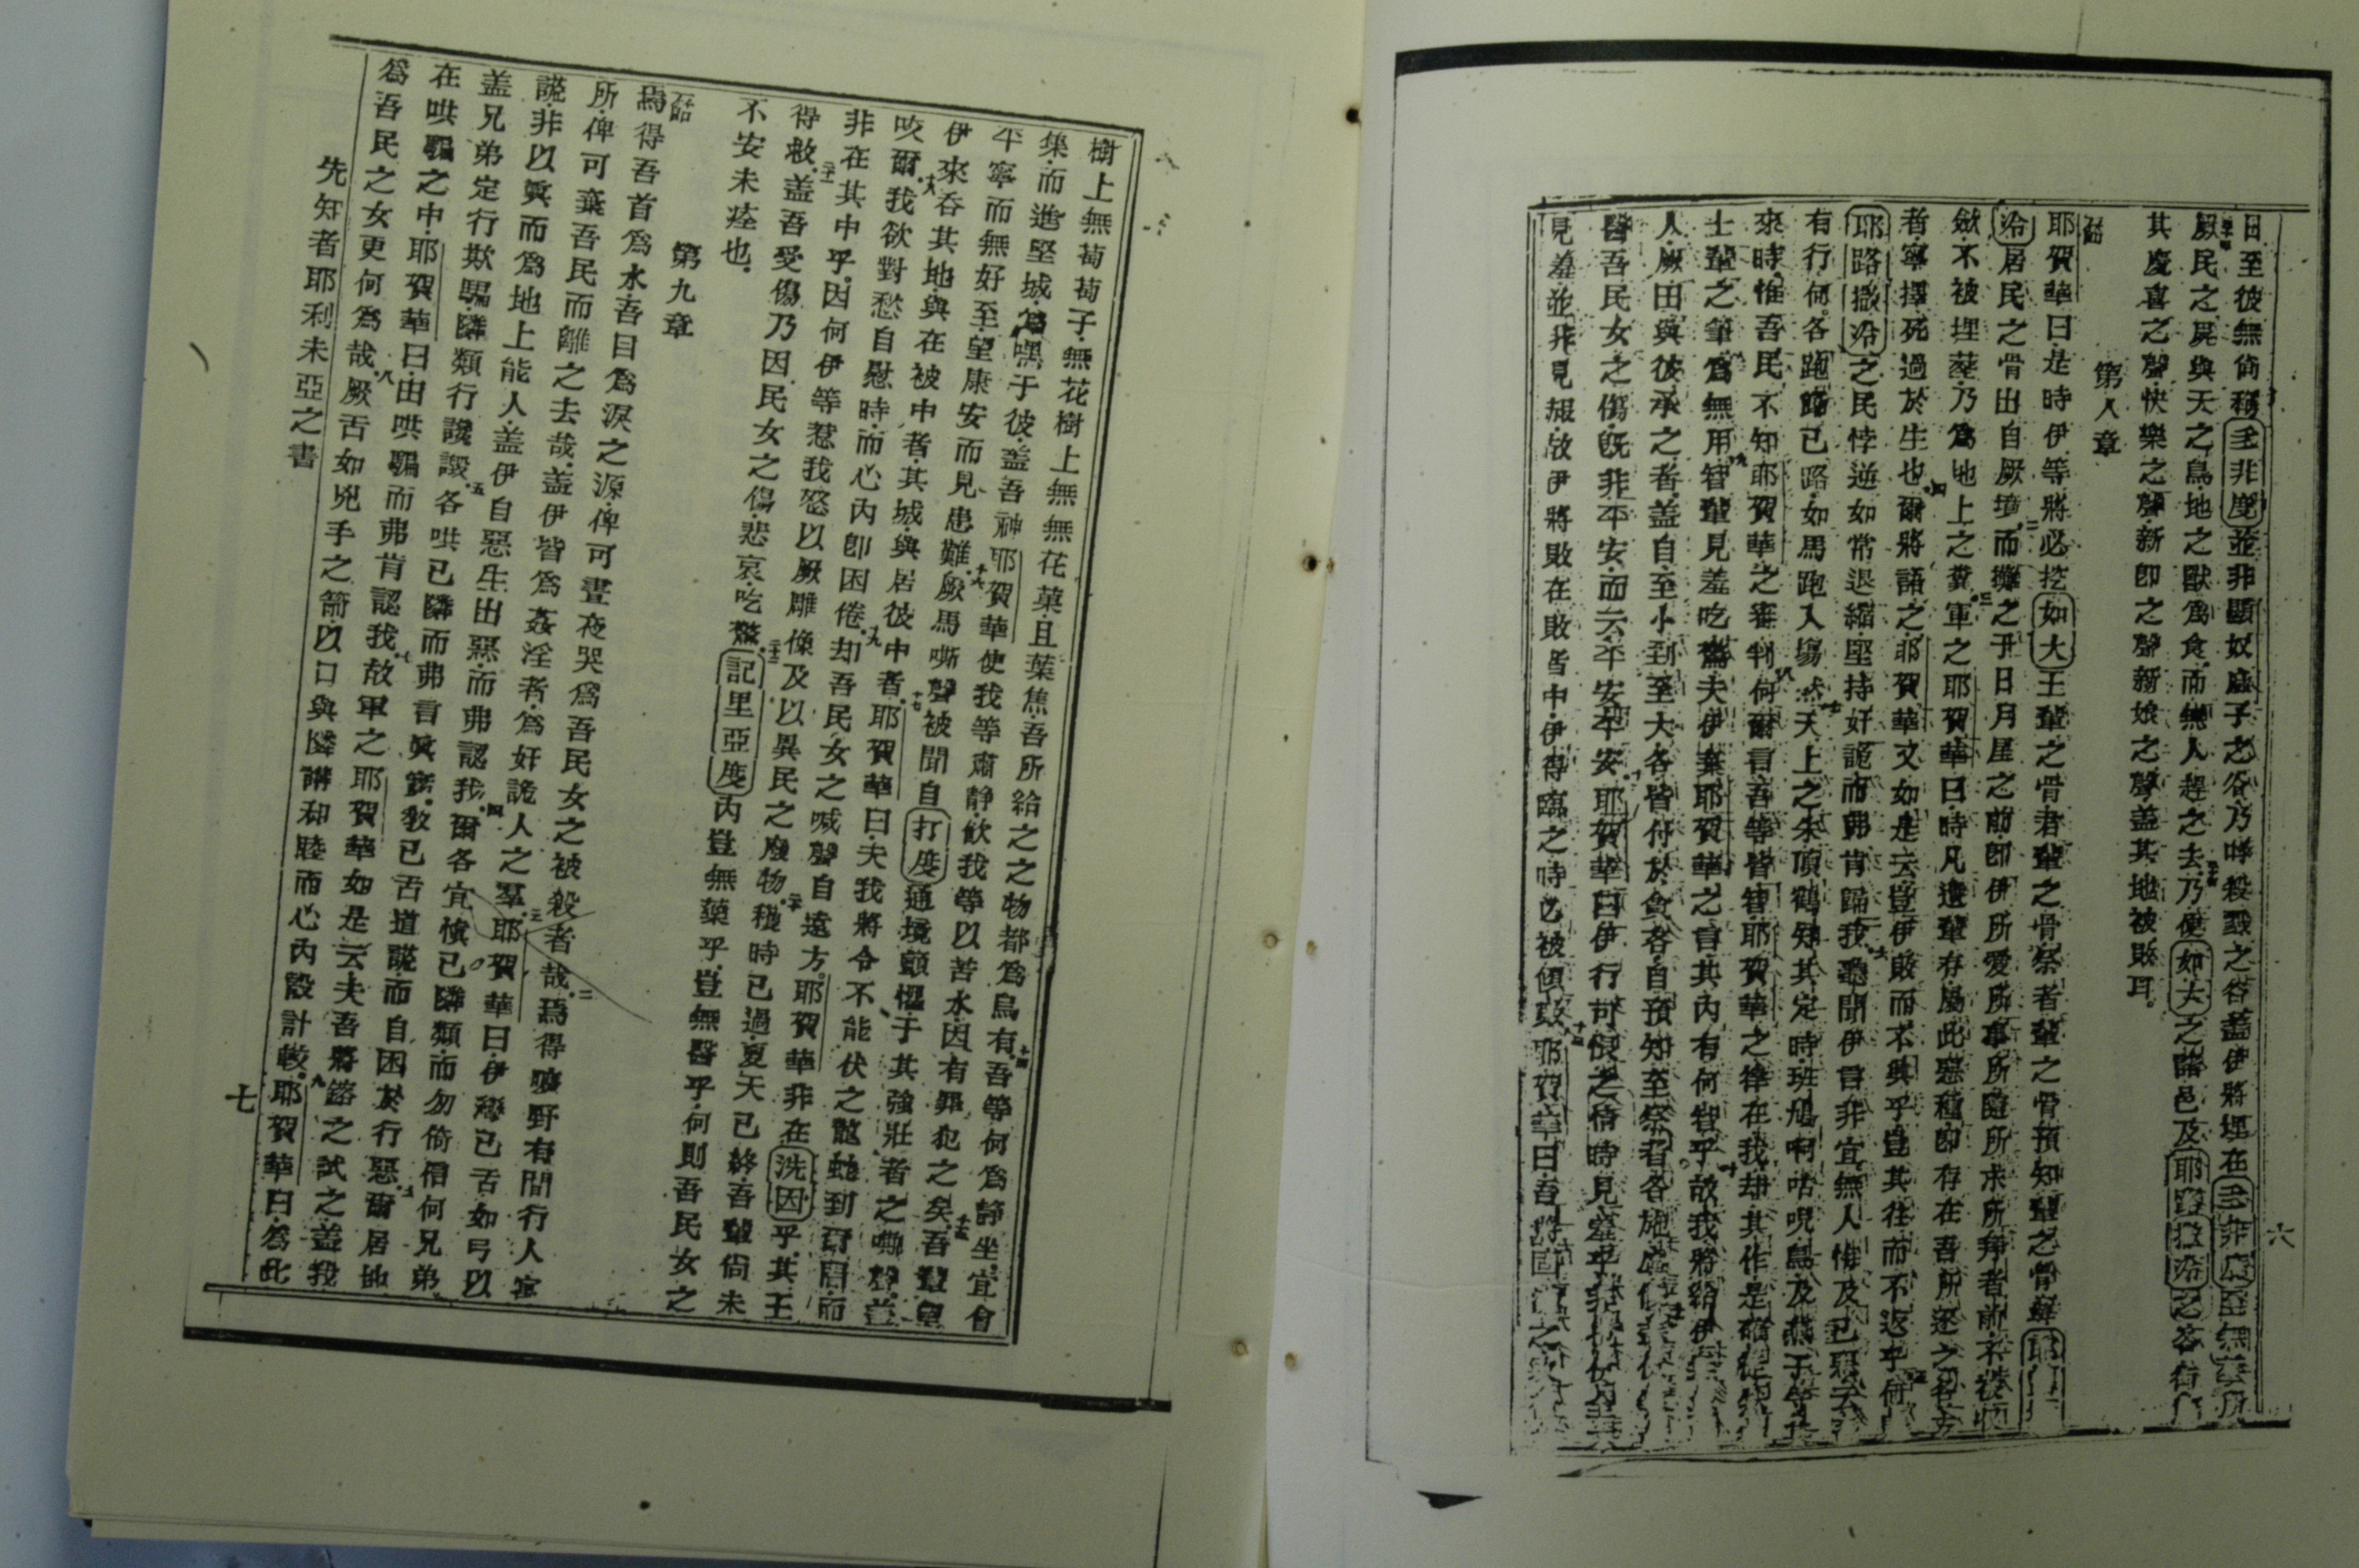 日至彼無尙稱多非度並非顯奴扁子之谷乃呼殺戮之谷盖伊將埋在多非度至無
厥民之屍與天之鳥地之獸爲食而無人趕之去乃使如大之諸邑及耶路撒冷之各街
其慶喜之聲快樂之聲新郎之聲新娘之聲盖其地被敗耳
第八章
耶賀華曰是時伊等將必挖如大王輩之骨君輩之骨祭者輩之骨預知輩之骨耶
冷居民之骨出自厥墳而攤之于日月星之前卽伊所愛所事所隨所求所拜者前不被
斂不被埋葬乃爲地上之糞軍之耶賀華曰時凡遺輩存屬此惡種卽存在吾所逐之各方
者寧擇死過於生也爾將語之耶賀華又如是云豈伊敗而不興乎豈其往而不返乎何
耶路撒冷之民悖逆如常退縮堅持奸詭而弗肯歸我聽聞伊言非宜無人悔及已惡云
有行何各跑歸已路如馬跑入塲然天上之朱頂鶴知其定時班鳩啊咕唲鳥及燕子
來時惟吾民不知耶賀華之審判何爾言吾等皆智耶賀華之律在我却其作是
士輩之筆爲無用智輩見羞吃驚夫伊棄耶賀華之言其內有何智乎故我將給伊
人厥田與彼承之者盖自至小到至大各皆付於貪吝自預知至祭者各施虛
醫吾民女之傷旣非平安而云平安平安耶賀華曰伊行可恨之情時見羞乎非
見羞並非見赧故伊將敗在敗者中伊得臨之時必被傾敗耶賀華曰吾將
六
樹上無萄萄子無花樹上無無花菓且葉焦吾所給之之物都爲烏有吾等何爲靜坐宜會
集而進堅城爲嘿于彼盖吾神耶賀華使我等肅靜飮我等以苦水因有罪犯之矣吾輩望
平寧而無好至望康安而見患難厥馬嘶聲被聞自打度通境顫慴于其強壯者之嘶聲盖
伊來呑其地與在被中者其城與居彼中者耶賀華曰夫我將令不能伏之虺蛇到爾間而
咬爾我欲對愁自慰時而心內卽困倦却吾民女之喊聲自遠方耶賀華非在洗因乎其王
非在其中乎因何伊等惹我怒以厥雕像及以異民之廢物穫時已過夏天已終吾輩尙未
得救盖吾受傷乃因民女之傷悲哀吃驚記里亞度內豈無藥乎豈無醫乎何則吾民女之
不安未痊也
第九章
焉得吾首爲水吾目爲淚之源俾可晝夜哭爲吾民女之被殺者哉焉得曠野有間行人寓
所俾可棄吾民而離之去哉盖伊皆爲姦淫者爲奸詭人之羣耶賀華曰伊灣已舌如弓以
謊非以眞而爲地上能人盖伊自惡生出惡而弗認我爾各宜愼已隣類而勿倚信何兄弟
盖兄弟定行欺騙隣類行讒譭各哄已隣而弗言眞實敎已舌道謊而自困於行惡爾居地
在哄騙之中耶賀華曰由哄騙而弗肯認我故軍之耶賀華如是云夫吾將鎔之試之盖我
爲吾民之女更何爲哉厥舌如兇手之箭以口與隣講和睦而心內設計較耶賀華曰爲此
先知者耶利未亞之書
七